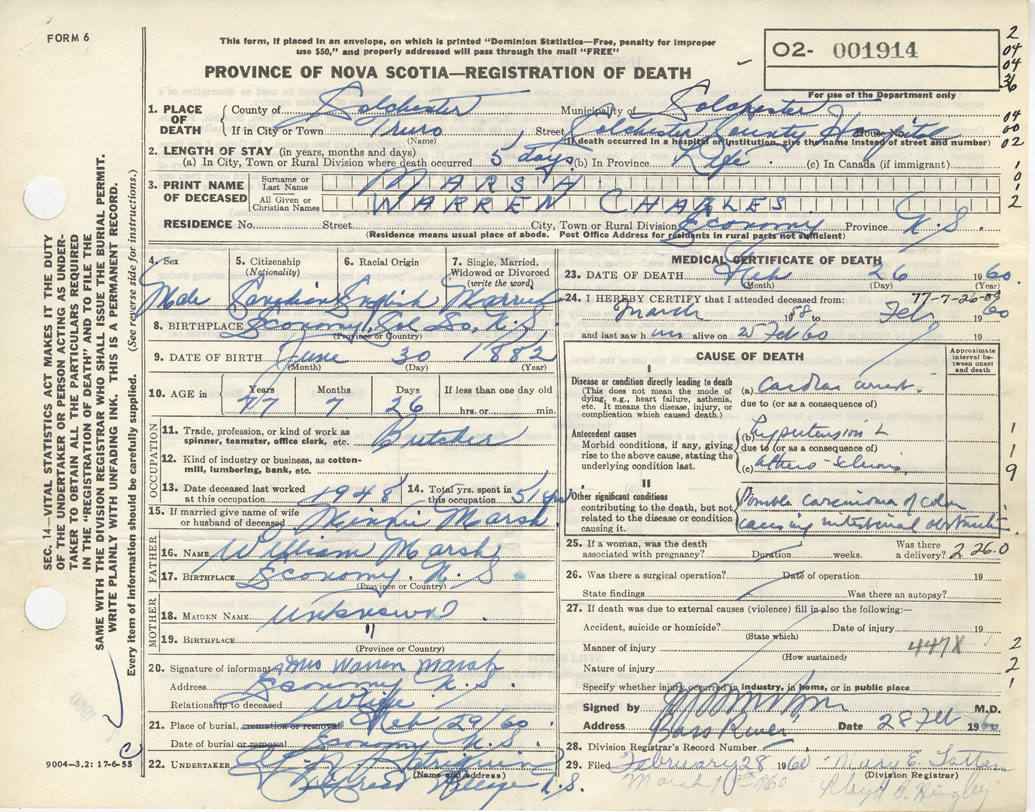 FORM 6
This form, if placed in an envelope, on which is printed "Dominion Statistics—Free, penalty for improper
use $50," and properly addressed will pass through the mail "FREE"
PROVINCE OF NOVA SCOTIA—REGISTRATION OF DEATH
O2- 001914
For use of the Department only
2
04
04
36
1. PLACE OF DEATH
County of Colchester Municipality of Colchester
04
00
If in City or Town Truro Street Colchester County Hospital House No.
02
(Name) (If death occurred in a hospital or institution, give the name instead of street and number)
2. LENGTH OF STAY (in years, months and days)
(a) In City, Town or Rural Division where death occurred 5 days (b) In Province Life (c) In Canada (if immigrant)
1
0
1
2
3. PRINT NAME OF DECEASED
Surname or Last Name MARSH
All Given or Christian Names WARREN CHARLES
RESIDENCE No. Street City, Town or Rural Division Economy Province N.S.
(Residence means usual place of abode. Post Office Address for residents in rural parts not sufficient)
4. Sex
5. Citizenship (Nationality)
6. Racial Origin
7. Single, Married, Widowed or Divorced (write the word)
Male Canadian English Married
8. BIRTHPLACE Economy, Col Co, N.S.
(Province or Country)
9. DATE OF BIRTH June 30 1882
(Month) (Day) (Year)
10. AGE in Years Months Days If less than one day old
77 7 26 hrs. or min.
OCCUPATION
11. Trade, profession, or kind of work as spinner, teamster, office clerk, etc. Butcher
12. Kind of industry or business, as cotton-mill, lumbering, bank, etc.
13. Date deceased last worked at this occupation 1948
14. Total yrs. spent in this occupation 51 yrs
15. If married give name of wife or husband of deceased Minnie Marsh
FATHER
16. NAME William Marsh
17. BIRTHPLACE Economy. N.S.
(Province or Country)
MOTHER
18. MAIDEN NAME Unknown
19. BIRTHPLACE "
(Province or Country)
20. Signature of informant Mrs Warren Marsh
Address Economy N.S.
Relationship to deceased Wife
21. Place of burial, cremation or removal Feb 29/60
Date of burial or removal Economy N.S.
22. UNDERTAKER
(Name and address)
Village N.S.
MEDICAL CERTIFICATE OF DEATH
23. DATE OF DEATH Feb 26 1960
(Month) (Day) (Year)
77-7-26
24. I HEREBY CERTIFY that I attended deceased from:
March 1958 to Feb 1960
and last saw him alive on 25 Feb 60
CAUSE OF DEATH
Approximate interval between onset and death
I
Disease or condition directly leading to death
(This does not mean the mode of dying, e.g., heart failure, asthenia, etc. It means the disease, injury, or complication which caused death.)
(a) Cardiac arrest
due to (or as a consequence of)
Antecedent causes
Morbid conditions, if any, giving rise to the above cause, stating the underlying condition last.
(b) Hypertension
due to (or as a consequence of)
(c)
1
1
9
II
Other significant conditions
contributing to the death, but not related to the disease or condition causing it.
Possible carcinoma of colon
causing intestinal obstruction
25. If a woman, was the death associated with pregnancy? Duration weeks. Was there a delivery?
226.0
26. Was there a surgical operation? Date of operation 19
State findings Was there an autopsy?
27. If death was due to external causes (violence) fill in also the following:—
Accident, suicide or homicide? Date of injury 19
(State which)
Manner of injury 447X
(How sustained)
2
Nature of injury
2
Specify whether injury occurred in industry, in home, or in public place
1
Signed by M.D.
Address Bass River Date 28 Feb 1960
28. Division Registrar's Record Number
29. Filed February 28 1960 Mary E.
(Division Registrar)
March 1960 Lloyd
SEC. 14—VITAL STATISTICS ACT MAKES IT THE DUTY
OF THE UNDERTAKER OR PERSON ACTING AS UNDER-
TAKER TO OBTAIN ALL THE PARTICULARS REQUIRED
IN THE "REGISTRATION OF DEATH" AND TO FILE THE
SAME WITH THE DIVISION REGISTRAR WHO SHALL ISSUE THE BURIAL PERMIT.
WRITE PLAINLY WITH UNFADING INK. THIS IS A PERMANENT RECORD.
Every item of information should be carefully supplied. (See reverse side for instructions.)
9004—3.2: 17-6-55